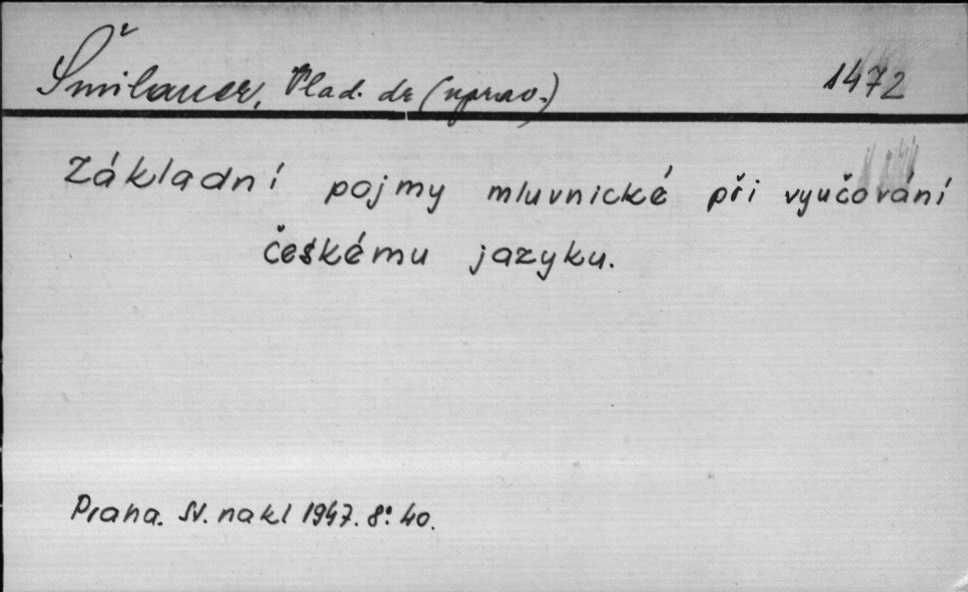 Šmilauer, Vlad. dr (uprav.) 1472
Základní pojmy mluvnické při vyučování
českému jazyku.
Praha. SV. nakl 1947. 8° 40.